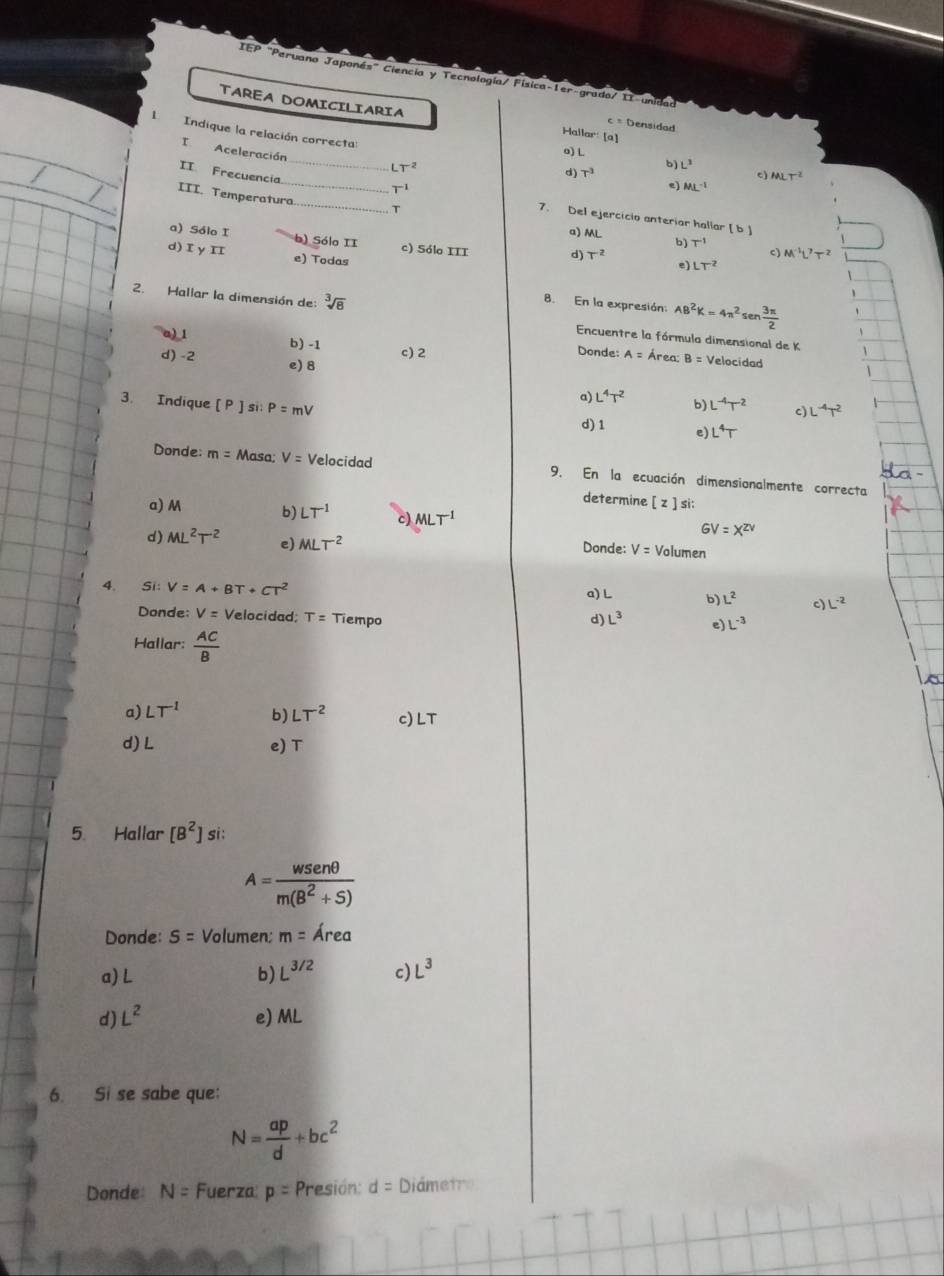 IEP "Peruano Japonés" Ciencia y Tecnología/ Física-1er-grado/ II-unidad
TAREA DOMICILIARIA
1. Indique la relación correcta:
I. Aceleración ______ LT⁻²
II. Frecuencia ______ T⁻¹
III. Temperatura ______ T
a) Sólo I b) Sólo II c) Sólo III
d) I y II e) Todas
2. Hallar la dimensión de: ∛8
a) 1 b) -1 c) 2
d) -2 e) 8
3. Indique [ P ] si: P = mV
Donde: m = Masa; V = Velocidad
a) M b) LT⁻¹ c) MLT⁻¹
d) ML²T⁻² e) MLT⁻²
4. Si: V = A + BT + CT²
Donde: V = Velocidad; T = Tiempo
Hallar: AC/B
a) LT⁻¹ b) LT⁻² c) LT
d) L e) T
5. Hallar [B²] si:
A = wsenθ / m(B² + S)
Donde: S = Volumen; m = Área
a) L b) L^3/2 c) L³
d) L² e) ML
6. Si se sabe que:
N = ap/d + bc²
Donde: N = Fuerza; p = Presión; d = Diámetro
c = Densidad
Hallar: [a]
a) L b) L³ c) MLT⁻²
d) T³ e) ML⁻¹
7. Del ejercicio anterior hallar [ b ]
a) ML b) T⁻¹ c) M⁻¹L⁷T⁻²
d) T⁻² e) LT⁻²
8. En la expresión: AB²K = 4π² sen 3π/2
Encuentre la fórmula dimensional de K
Donde: A = Área; B = Velocidad
a) L⁴T² b) L⁻⁴T⁻² c) L⁻⁴T²
d) 1 e) L⁴T
9. En la ecuación dimensionalmente correcta
determine [ z ] si:
GV = X^ZV
Donde: V = Volumen
a) L b) L² c) L⁻²
d) L³ e) L⁻³